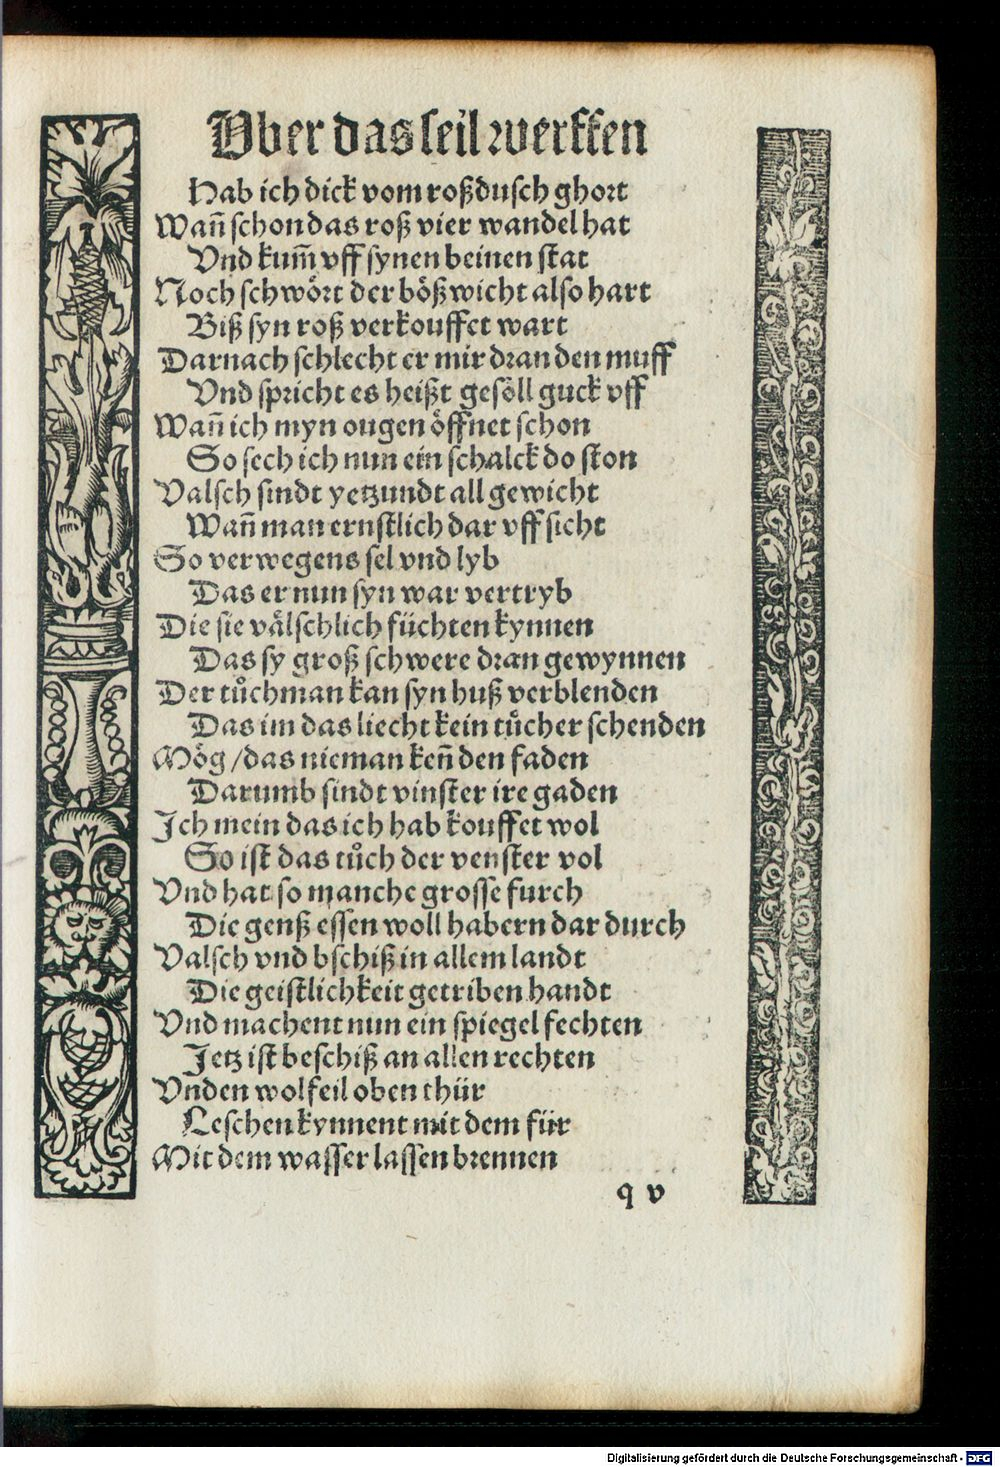 Vber das seil werffen
Hab ich dick vom roßdusch ghort
Wañ schon das roß vier wandel hat
Vnd kum̃ vff synen beinen stat
Noch schwört der bößwicht also hart
Biß syn roß verkouffet wart
Darnach schlecht er mir dran den muff
Vnd spricht es heißt gesöll guck vff
Wañ ich myn ougen öffnet schon
So sech ich nun ein schalck do ston
Valsch sindt yetzundt all gewicht
Wañ man ernstlich dar vff sicht
So verwegens sel vnd lyb
Das er nun syn war vertryb
Die sie välschlich füchten kynnen
Das sy groß schwere dran gewynnen
Der tůchman kan syn huß verblenden
Das im das liecht kein tůcher schenden
Mög / das nieman keñ den faden
Darumb sindt vinster ire gaden
Ich mein das ich hab kouffet wol
So ist das tůch der venster vol
Vnd hat so manche grosse furch
Die genß essen woll habern dar durch
Valsch vnd bschiß in allem landt
Die geistlichkeit getriben handt
Vnd machent nun ein spiegel fechten
Jetz ist beschiß an allen rechten
Vnden wolfeil oben thür
Leschen kynnent mit dem für
Mit dem wasser lassen brennen
q v
Digitalisierung gefördert durch die Deutsche Forschungsgemeinschaft - DFG